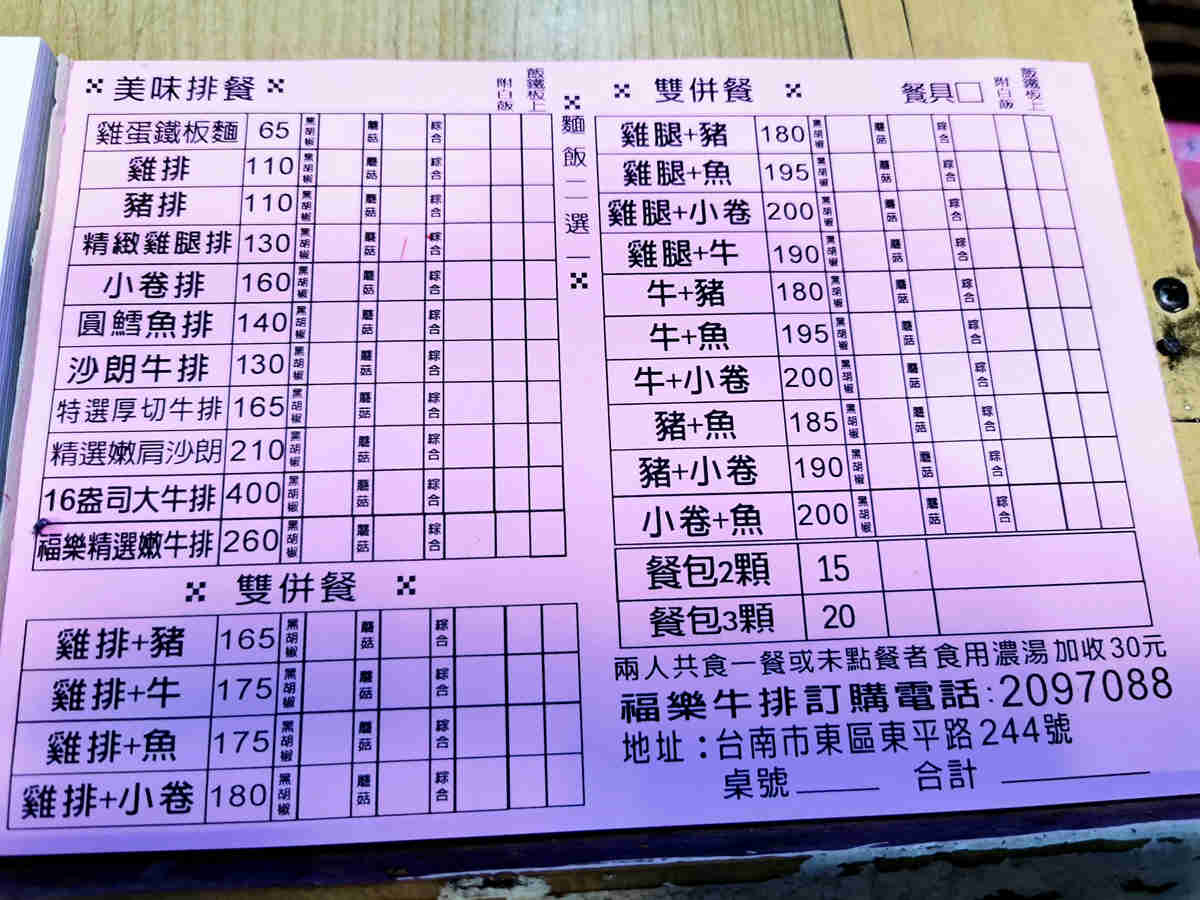 ※美味排餐※ 附白飯 飯鐵板上
雞蛋鐵板麵 65 黑胡椒 蘑菇 綜合
雞排 110 黑胡椒 蘑菇 綜合
豬排 110 黑胡椒 蘑菇 綜合
精緻雞腿排 130 黑胡椒 蘑菇 綜合
小卷排 160 黑胡椒 蘑菇 綜合
圓鱈魚排 140 黑胡椒 蘑菇 綜合
沙朗牛排 130 黑胡椒 蘑菇 綜合
特選厚切牛排 165 黑胡椒 蘑菇 綜合
精選嫩肩沙朗 210 黑胡椒 蘑菇 綜合
16盎司大牛排 400 黑胡椒 蘑菇 綜合
福樂精選嫩牛排 260 黑胡椒 蘑菇 綜合
※雙併餐※
雞排+豬 165 黑胡椒 蘑菇 綜合
雞排+牛 175 黑胡椒 蘑菇 綜合
雞排+魚 175 黑胡椒 蘑菇 綜合
雞排+小卷 180 黑胡椒 蘑菇 綜合
※麵飯二選一※
※雙併餐※ 餐具□ 附白飯 飯鐵板上
雞腿+豬 180 黑胡椒 蘑菇 綜合
雞腿+魚 195 黑胡椒 蘑菇 綜合
雞腿+小卷 200 黑胡椒 蘑菇 綜合
雞腿+牛 190 黑胡椒 蘑菇 綜合
牛+豬 180 黑胡椒 蘑菇 綜合
牛+魚 195 黑胡椒 蘑菇 綜合
牛+小卷 200 黑胡椒 蘑菇 綜合
豬+魚 185 黑胡椒 蘑菇 綜合
豬+小卷 190 黑胡椒 蘑菇 綜合
小卷+魚 200 黑胡椒 蘑菇 綜合
餐包2顆 15
餐包3顆 20
兩人共食一餐或未點餐者食用濃湯加收30元
福樂牛排訂購電話:2097088
地址:台南市東區東平路244號
桌號____ 合計________